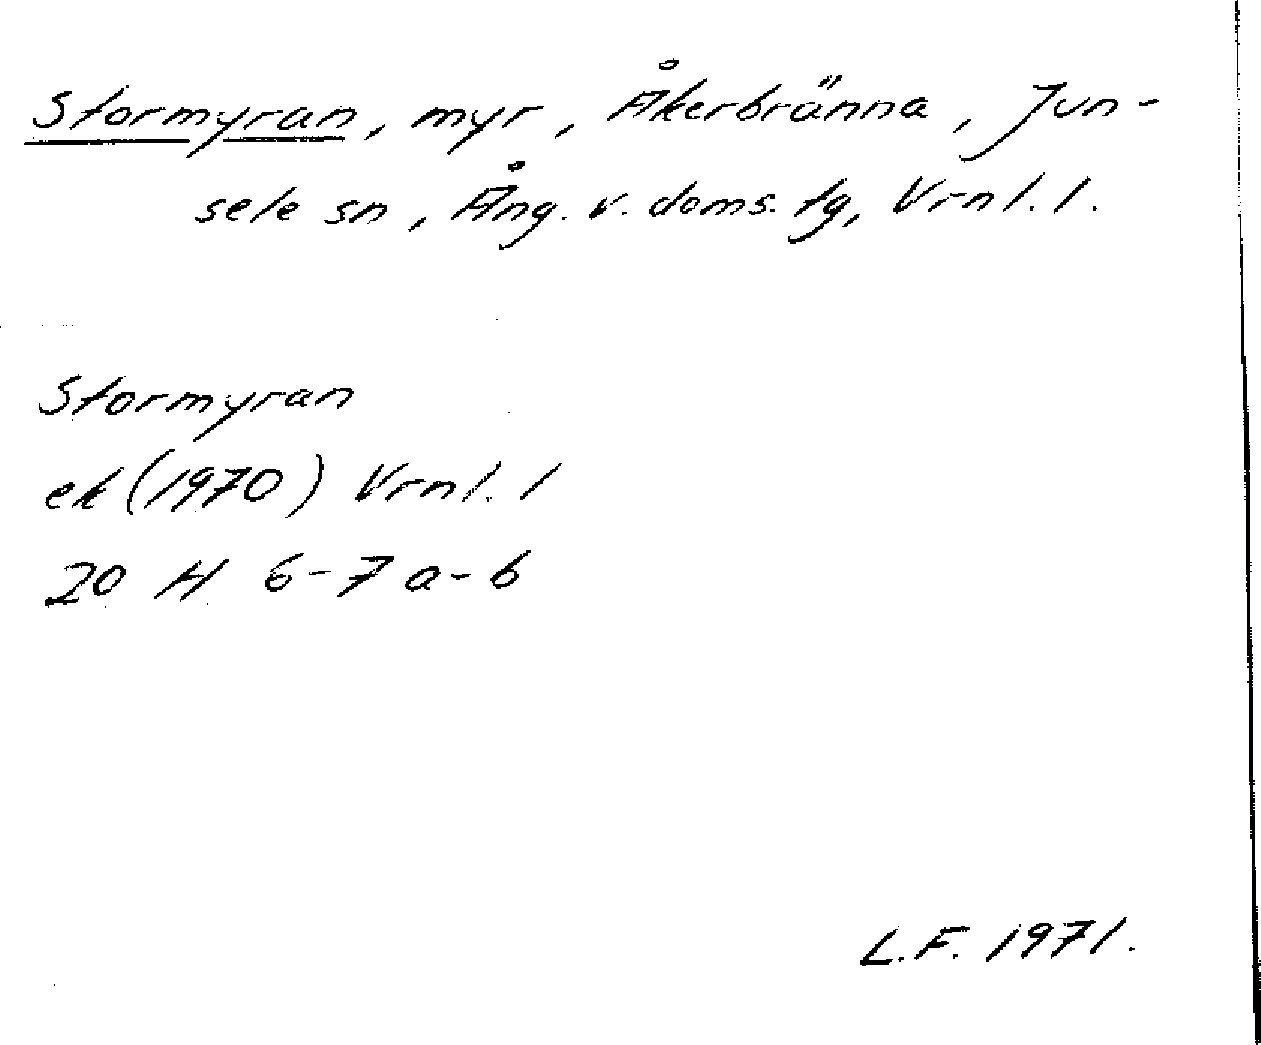 Stormyran, myr, Åkerbränna, Jun-
sele sn, Ång. v. doms. tg, Vrnl. l.
Stormyran
ek (1970) Vrnl. l
20 H 6-7 a-b
L.F. 1971.